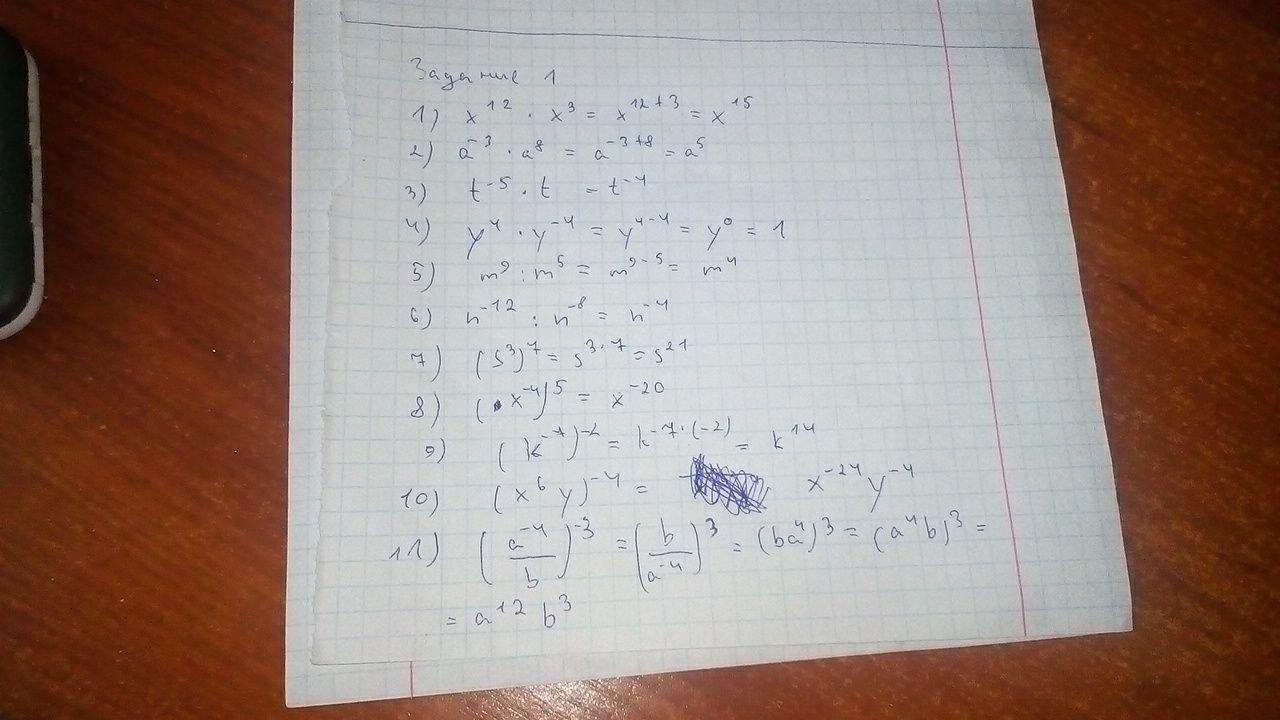 Задание 1
1) x¹² · x³ = x¹²⁺³ = x¹⁵
2) a⁻³ · a⁸ = a⁻³⁺⁸ = a⁵
3) t⁻⁵ · t = t⁻⁴
4) y⁴ · y⁻⁴ = y⁴⁻⁴ = y⁰ = 1
5) m⁹ : m⁵ = m⁹⁻⁵ = m⁴
6) n⁻¹² : n⁻⁸ = n⁻⁴
7) (s³)⁷ = s^(3·7) = s²¹
8) (x⁻⁴)⁵ = x⁻²⁰
9) (k⁻⁷)⁻² = k^(-7·(-2)) = k¹⁴
10) (x⁶ y)⁻⁴ = x⁻²⁴ y⁻⁴
11) (a⁻⁴/b)⁻³ = (b/a⁻⁴)³ = (ba⁴)³ = (a⁴b)³ =
= a¹² b³